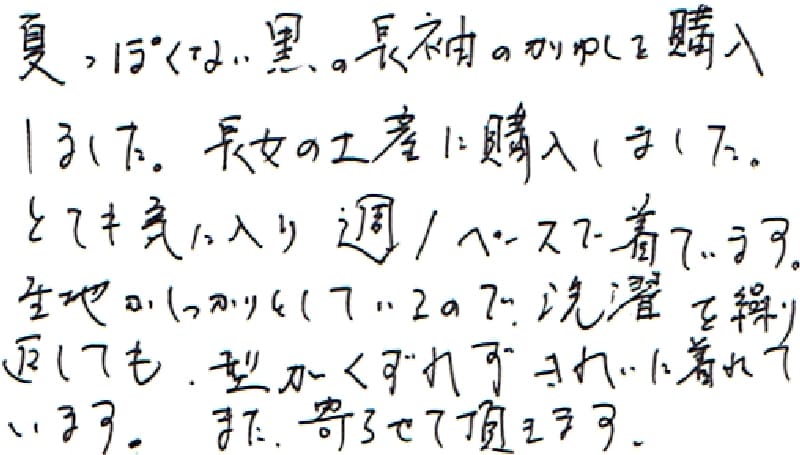 夏っぽくない黒の長袖のかりゆしを購入
しました。長女の土産に購入しました。
とても気に入り週1ペースで着ています。
生地がしっかりとしているので、洗濯を繰り
返しても、型がくずれずきれいに着れて
います。また、寄らせて頂きます。